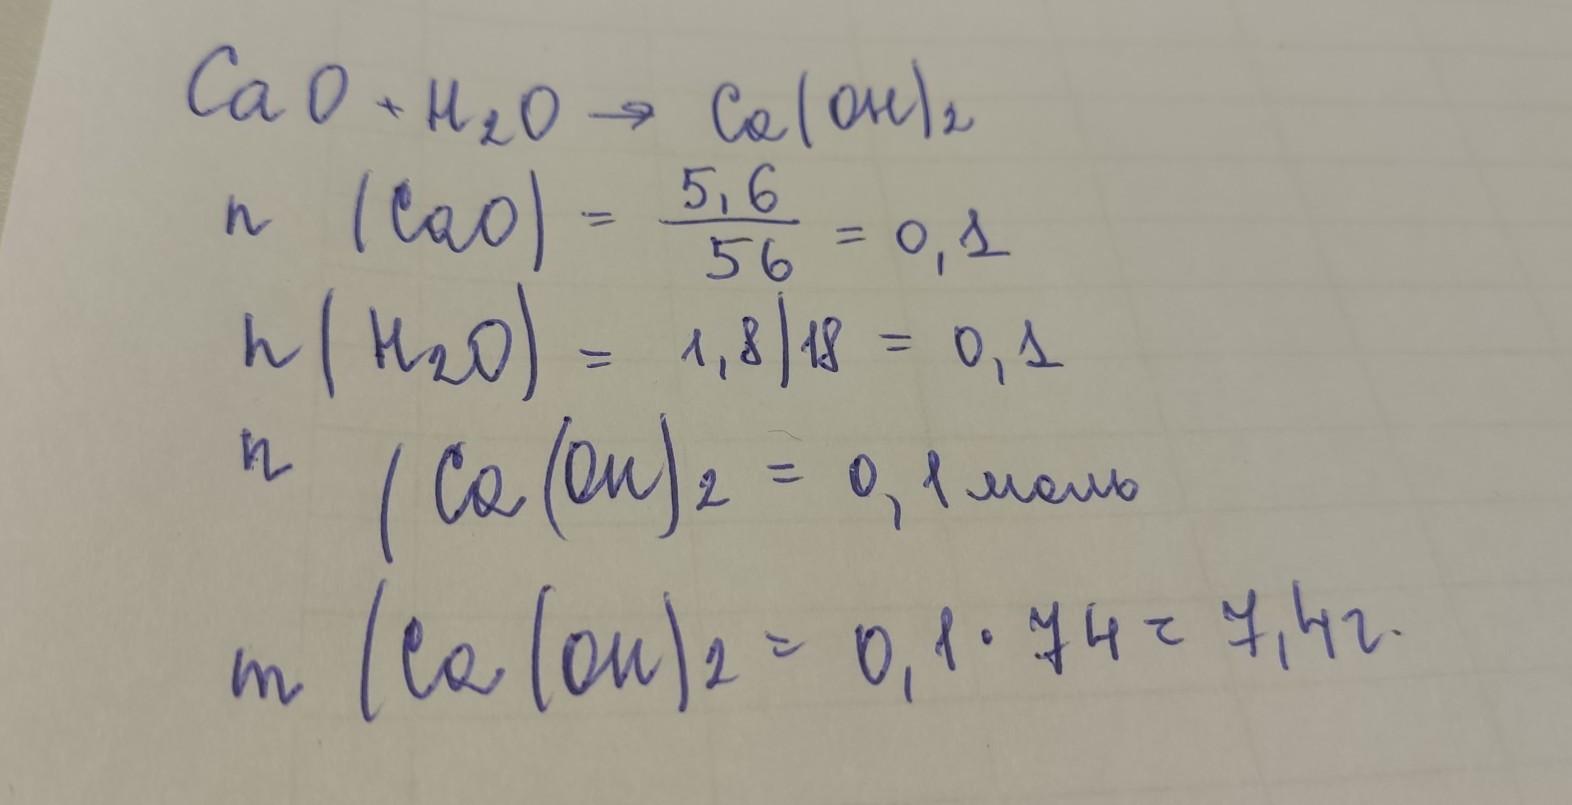 CaO + H₂O → Ca(OH)₂
n (CaO) = 5,6/56 = 0,1
n(H₂O) = 1,8/18 = 0,1
n (Ca(OH)₂ = 0,1 моль
m (Ca(OH)₂ = 0,1 · 74 = 7,4г.